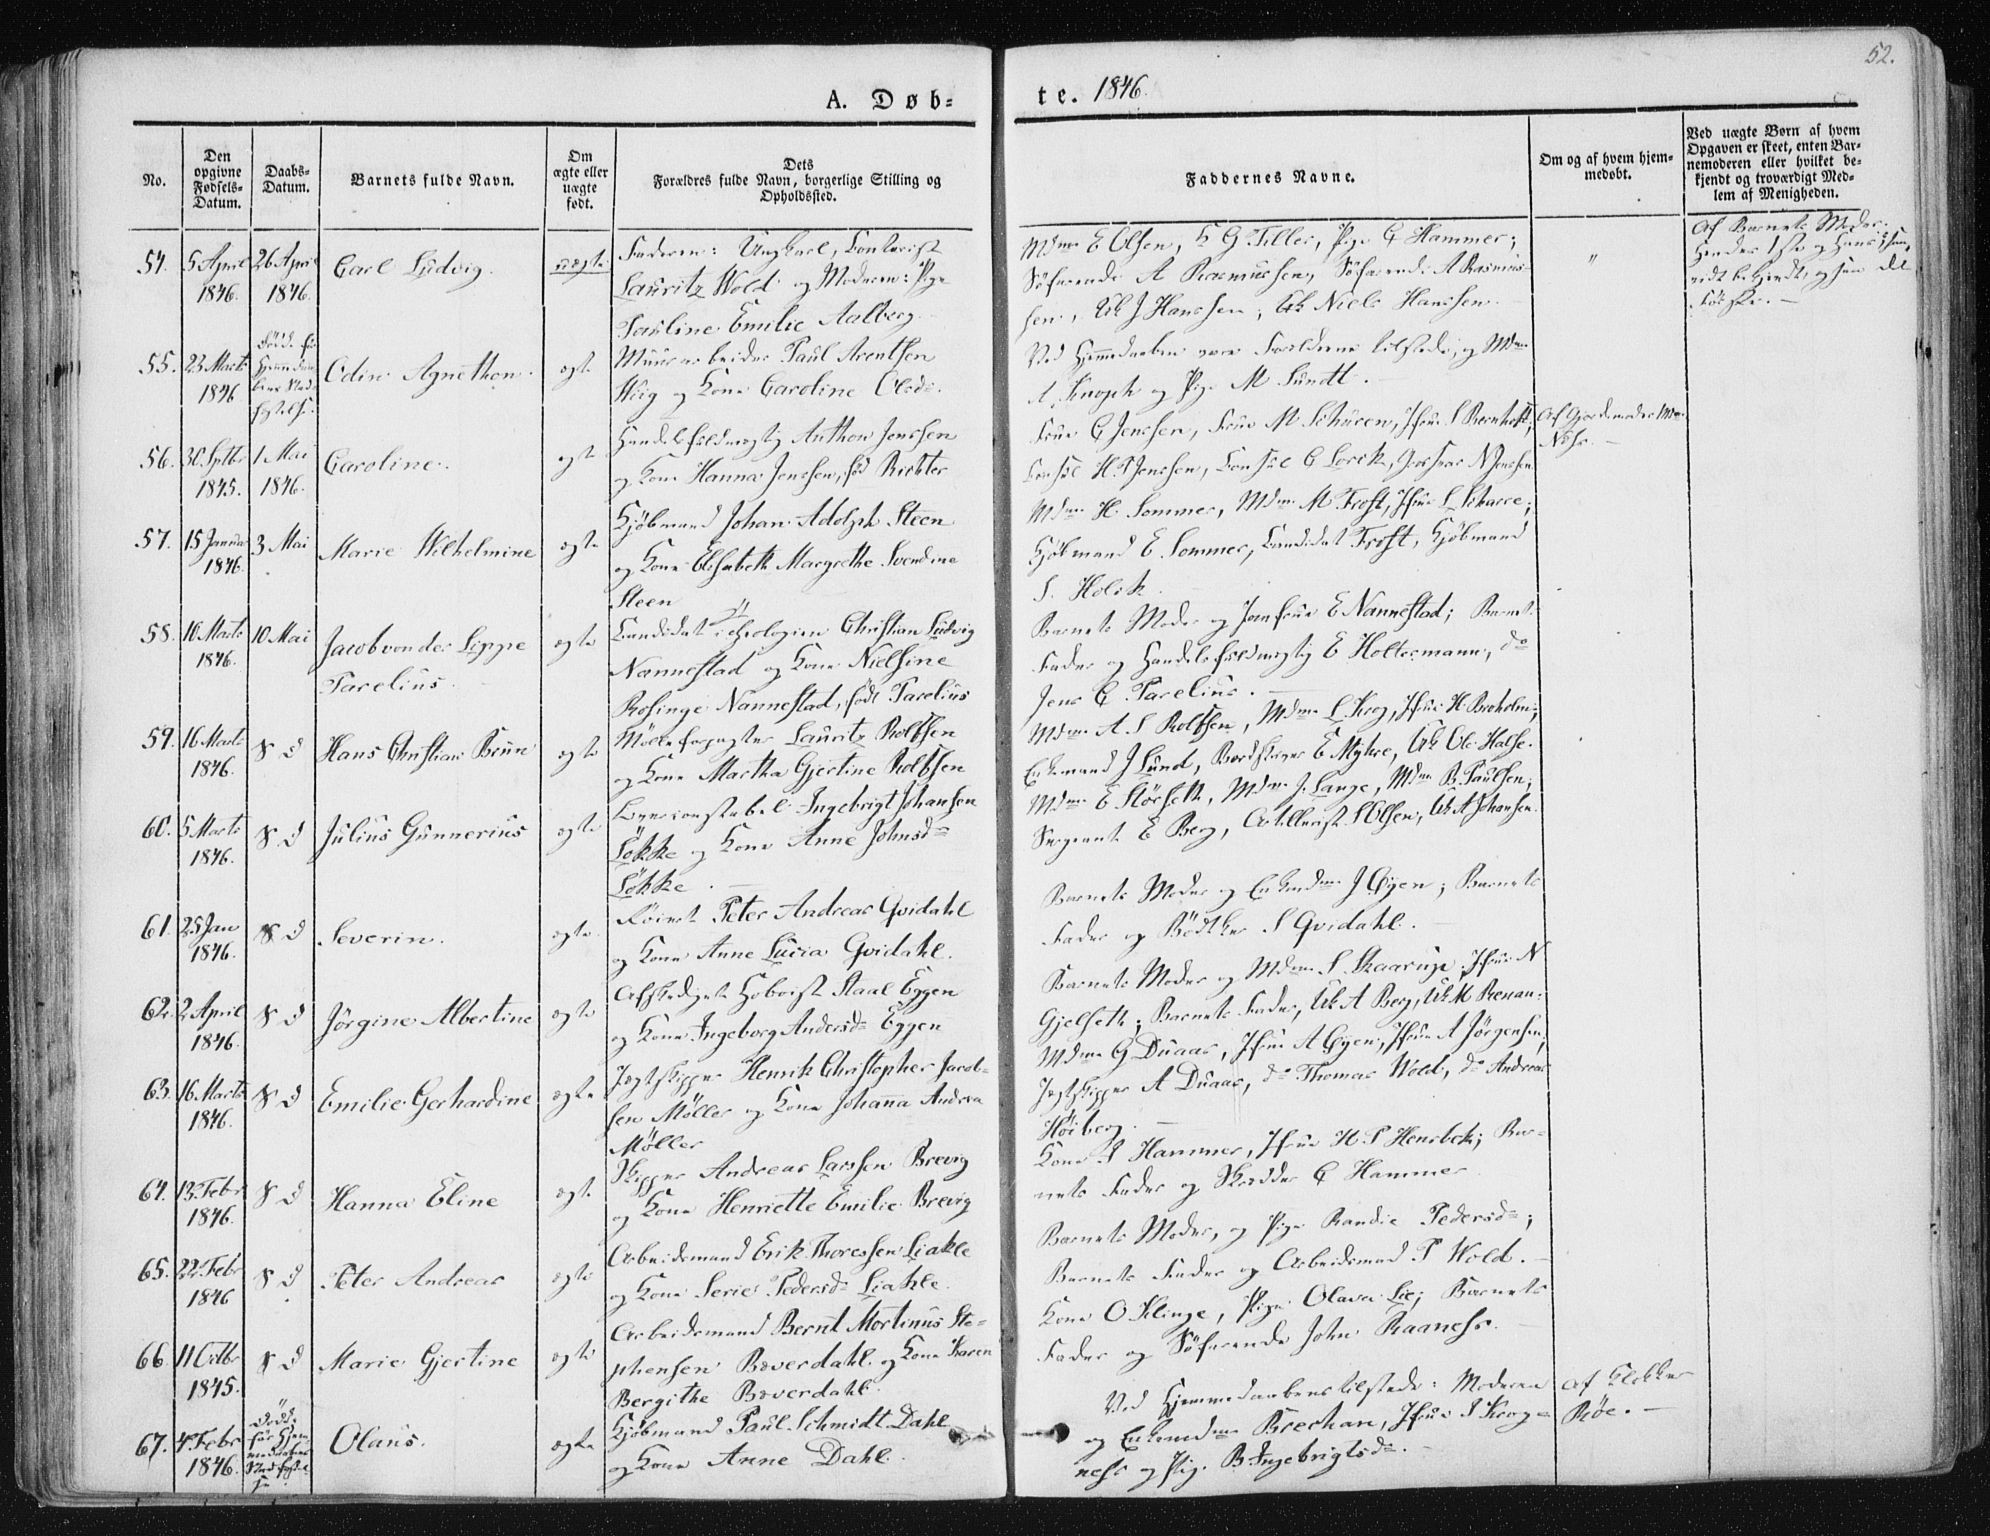 52.
A. Døb-
te. 1846.
No.
Den opgivne Fødsels-Datum.
Daabs-Datum.
Barnets fulde Navn.
Om ægte eller uægte født.
Dets Forældres fulde Navn, borgerlige Stilling og Opholdssted.
Faddernes Navne.
Om og af hvem hjem-medøbt.
Ved uægte Børn af hvem Opgaven er skeet, enten Bar-nemoderen eller hvilket be-kjendt og troværdigt Med-lem af Menigheden.
54. 5 April 1846. 26 April 1846. Carl Ludvig. uægte
Faderen: Ungkarl, Contorist
Lauritz Wold og Moderen: Pige
Pauline Emilie Aalberg.
Mdme E Olsen, G Tiller, Pige G Hammer;
Söfarende A Rasmussen, Söfarende A Rasmus-
sen, Uk J Hanssen, Uk Niels Hanssen.
"
Af Barnets Moder.
55. 23 Marts 1846 Odin Agnethon. ægte
Muurarbeider Paul Arentsen
Wiig og Kone Caroline Olsd.
Ved Hjemmedaaben vare Forældrene tilstede, og Mdme
A. Knoph og Pige M Sundt.
56. 30 Sptbr 1845. 1 Mai 1846. Caroline. ægte
Handelsfuldmægtig Anthon Jenssen
og Kone Hanna Jenssen, fød Richter
Frue C Jenssen, Frue M Schüren, Jfrue S Bernhoft,
Consul H. P Jenssen, Consul C Lorck, N Jenssen.
Af Gjordemoder Mdme
57. 15 Januar 1846. 3 Mai Marie Wilhelmine ægte
Kjöbmand Johan Adolph Steen
og Kone Elisabeth Margrethe Svendine
Steen
Mdme H. Sommer, Mdme M Frost, Jfrue L Scharre;
Kjöbmand E. Sommer, Candidat Frost, Kjöbmand
S. Holck
58. 10 Marts 1846. 10 Mai Jacob von der Lippe Parelius. ægte
Candidat i Theologien Christian Ludvig
Nannestad og Kone Nielsine
Rosinge Nannestad, født Parelius
Barnets Moder og Jomfrue E Nannestad; Barnets
Fader og Handelsfuldmægtig E Holtermann, do
Jens C Parelius.
59. 16 Marts 1846. S D Hans Christian Brun ægte
Mølleforpagter Lauritz Rolfsen
og Kone Martha Gjertine Rolfsen
Mdme A. S Rolfsen, Mdme L. Krog, Jfrue H Broholm;
Enkemand J Lund, E Myhre, Uk Ole Halse.
60. 5 Marts 1846. S. D Julius Gunnerius ægte
Ingebrigt Johansen
Løkke og Kone Anne Johnsd
Løkke.
Mdme E Störseth, Mdme J. Lange, Mdme B. Paulsen;
Sergeant E Berg, Artillerist S Olsen, Uk A Johansen.
61. 25 Jan 1846. S D Severin. ægte
Peter Andreas Qvidahl
og Kone Anne Lucia Qvidahl.
Barnets Moder og Enkemdme J Öyen; Barnets
Fader og Bödtker S Qvidahl.
62. 2 April 1846. S D Jörgine Albertine ægte
Afskediget Hoboist Staal Eggen
og Kone Ingeborg Andersd Eggen
Barnets Moder og Mdme S. Skaarup, Jfrue N
Gjelseth; Barnets Fader, Uk A Berg, Uk M Renan.
63. 16 Marts 1846. S D Emilie Gerhardine ægte
Jægtskipper Henrik Christopher Jacob-
sen Møller og Kone Johanna Andrea
Møller
Mdme G Duaas, Jfrue A Öyen, Jfrue A Jörgensen,
Jægtskipper A Duaas, do Thomas Wold, do Andreas
Höiberg.
64. 13 Febr 1846. S D Hanna Eline ægte
Skipper Andreas Larssen Brevig
og Kone Henriette Emilie Brevig
Kone J Hammer, Jfrue H. S Hensbek; Bar-
nets Fader og Skrædder C Hammer
65. 22 Febr 1846 S D Peter Andreas ægte
Arbeidsmand Erik Thoresen Liahle
og Kone Serie Pedersd Liahle.
Barnets Moder, og Pige Randie Pedersd;
Barnets Fader og Arbeidsmand P Wold.
66. 11 Octbr 1845. S D Marie Gjertine ægte
Arbeidsmand Bernt Mortinus Ste-
phensen Bæverdahl og Kone Karen
Bergithe Bæverdahl.
Kone O Klinge, Pige Olava Lie; Barnets
Fader og Söfarende John Raaness.
67. 4 Febr 1846. Olaus. ægte
Kjöbmand Paul Schmidt Dahl
og Kone Anne Dahl.
Ved Hjemmedaaben tilstede: Moderen
og Enkemdme Brechan, Jfrue S Krog-
ness og Pige B. Ingebrigtsd.
Af Klokker
Röe.